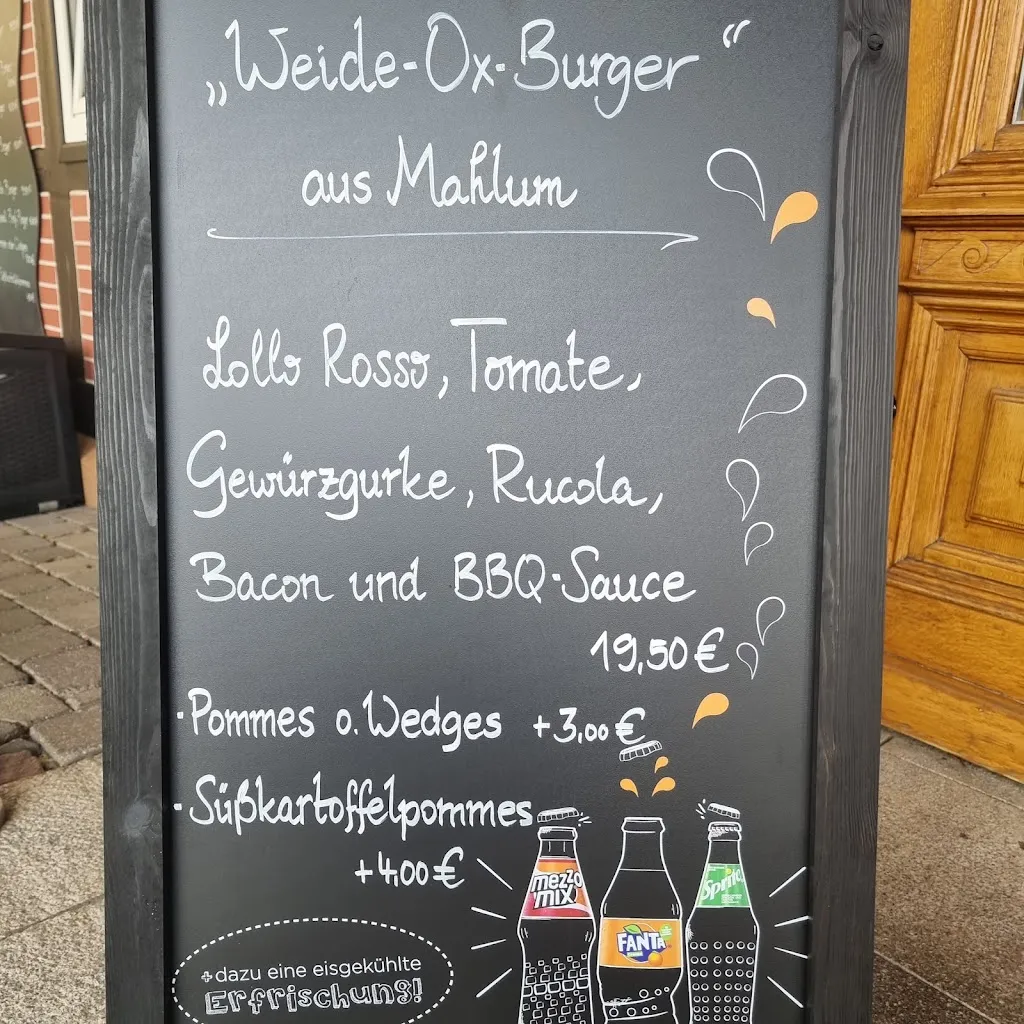 „Weide-Ox-Burger“
aus Mahlum
Lollo Rosso, Tomate,
Gewürzgurke, Rucola,
Bacon und BBQ-Sauce
19,50 €
·Pommes o. Wedges +3,00 €
·Süßkartoffelpommes
+4,00 €
mezzo
mix
FANTA
Sprite
+dazu eine eisgekühlte
Erfrischung!